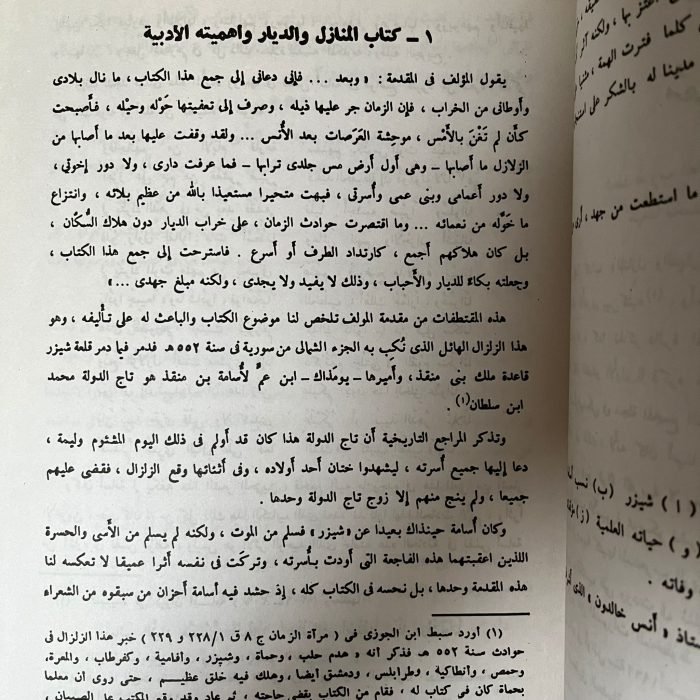 ١ ـ كتاب المنازل والديار وأهميته الأدبية
يقول المؤلف فى المقدمة : « وبعد ... فإنى دعانى إلى جمع هذا الكتاب ، ما نال بلادى
وأوطانى من الخراب ، فإن الزمان جر عليها ذيله ، وصرف إلى تعفيتها حَوْله وحيْله ، فأصبحت
كأن لم تَغْنَ بالأَمْس ، موحِشة العَرَصات بعد الأُنس ... ولقد وقفت عليها بعد ما أصابها من
الزلازل ما أصابها – وهى أول أرض مس جلدى ترابها – فما عرفت دارى ، ولا دور إخوتى ،
ولا دور أعمامى وبنى عمى وأُسرتى ، فبهت متحيرا مستعيذا بالله من عظيم بلائه ، وانتزاع
ما خَوَّله من نعمائه ... وما اقتصرت حوادث الزمان ، على خراب الديار دون هلاك السُّكان ،
بل كان هلاكهم أجمع ، كارتداد الطرف أو أسرع . فاسترحت إلى جمع هذا الكتاب ،
وجعلته بكاءً للديار والأَحباب ، وذلك لا يفيد ولا يجدى ، ولكنه مبلغ جهدى ... »
هذه المقتطفات من مقدمة المؤلف تلخص لنا موضوع الكتاب والباعث له على تأليفه ، وهو
هذا الزلزال الهائل الذى نُكِب به الجزء الشمالى من سورية فى سنة ٥٥٢ هـ فدمر فيما دمر قلعة شيزر
قاعدة ملك بنى منقذ ، وأميرها – يومذاك – ابن عمٍّ لأسامة بن منقذ هو تاج الدولة محمد
ابن سلطان(١) .
وتذكر المراجع التاريخية أن تاج الدولة هذا كان قد أولم فى ذلك اليوم المشئوم وليمة ،
دعا إليها جميع أُسرته ، ليشهدوا ختان أحد أولاده ، وفى أثنائها وقع الزلزال ، فقضى عليهم
جميعا ، ولم ينج منهم إلا زوج تاج الدولة وحدها .
وكان أسامة حينذاك بعيدا عن «شيزر» فسلم من الموت ، ولكنه لم يسلم من الأسى والحسرة
اللذين أعقبتهما هذه الفاجعة التى أودت بأُسرته ، وتركت فى نفسه أثرا عميقا لا تعكسه لنا
هذه المقدمة وحدها ، بل نحسه فى الكتاب كله ، إذ حشد فيه أسامة أحزان من سبقوه من الشعراء
(١) أورد سبط ابن الجوزى فى ( مرآة الزمان ج ٨ ق ٢٢٨/١ و ٢٢٩ ) خبر هذا الزلزال فى
حوادث سنة ٥٥٢ هـ فذكر أنه «هدم حلب ، وحماة ، وشيزر ، وأفامية ، وكفرطاب ، والمعرة،
وحمص ، وأنطاكية ، وطرابلس ، ودمشق أيضا ، وهلك فيه خلق عظيم ، حتى روى أن معلما
بحماة كان فى كتاب له ، فقام من المكتب يقضى حاجته ، ثم عاد وقد وقع المكتب على الصبيان ،
بها ، ولكنه
كلما فترت الهمة ،
مدينا له بالشكر على
ما استطعت من جهد ، أرى
( ١ ) شيزر (ب) نسب
( و ) حياته العلمية (ز)
وفاته .
ستاذ « أنس خالدون » الذى